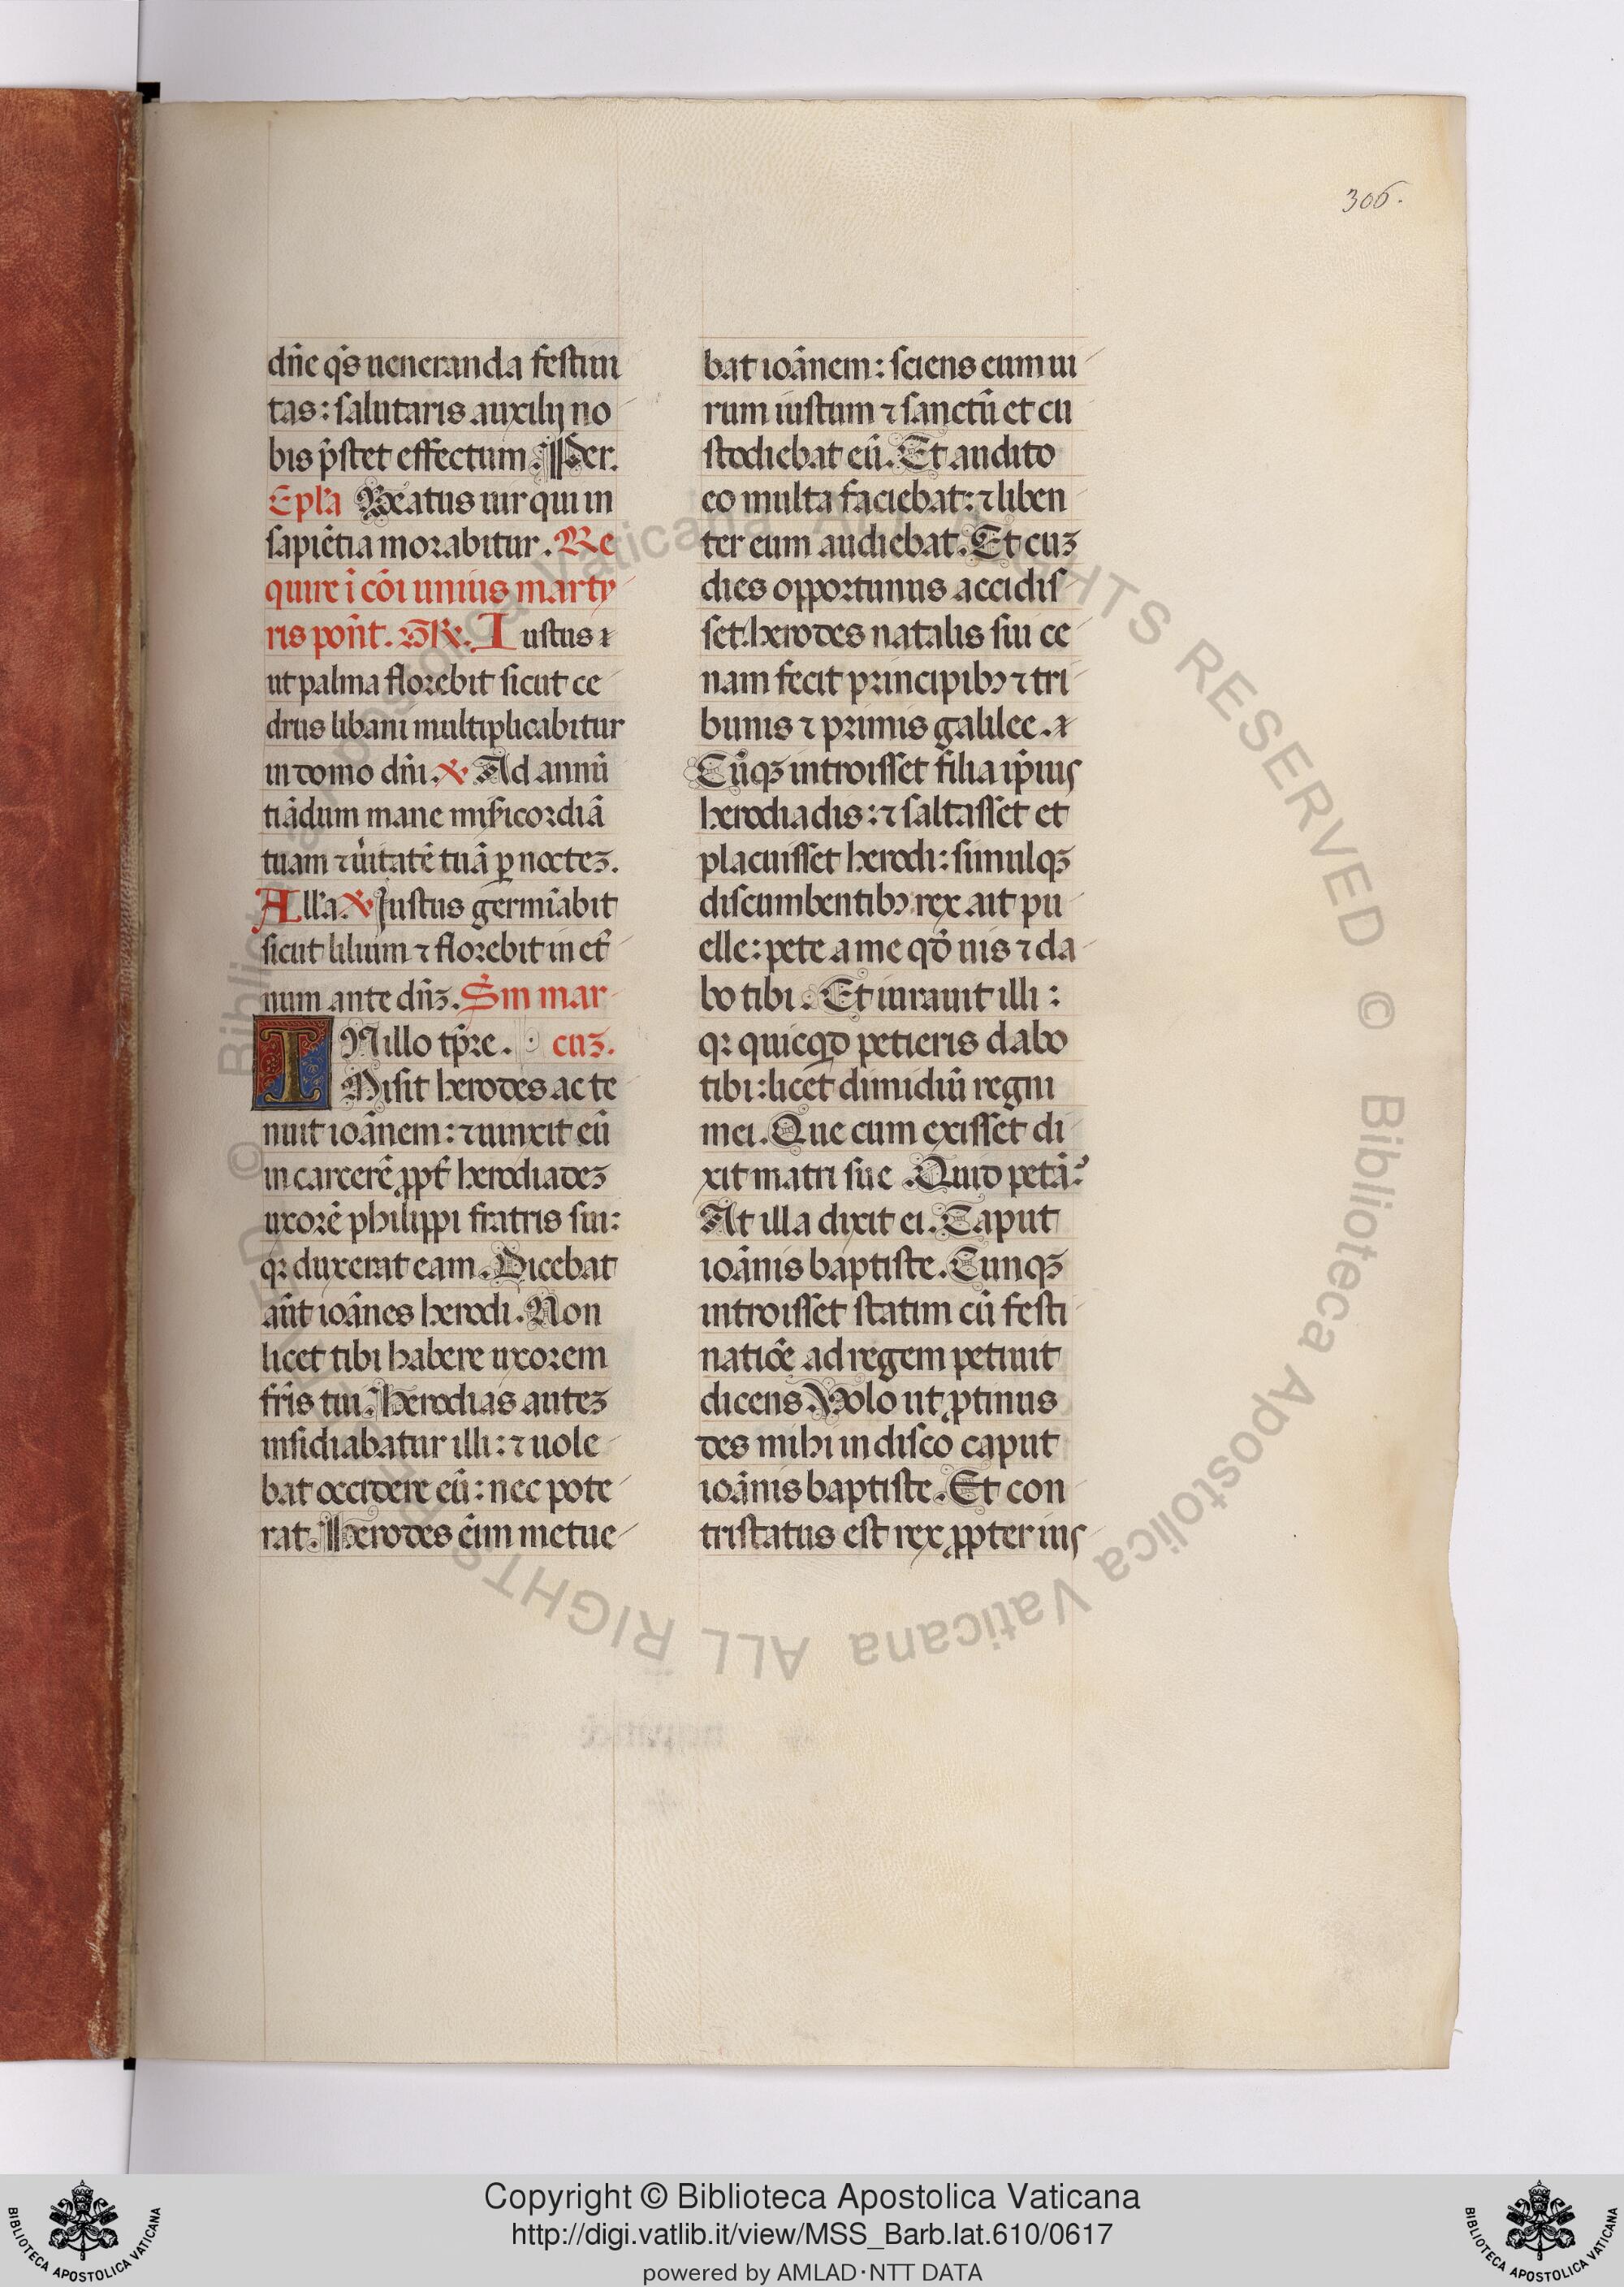 306.
dn̄e q̄s ueneranda festiui
tas: salutaris auxilij no
bis p̄stet effectum. Per.
Epl̄a Beatus uir qui in
sapiētia morabitur. Re
quire ī cōi unius marty
ris pon̄t. GR. Iustus
ut palma florebit sicut ce
drus libani multiplicabitur
in domo dn̄i. V Ad annū
tiādum mane misĉicordiā
tuam ⁊ ūitatē tuā ꝑ noctez.
All̄a. V Justus germīabit
sicut lilium ⁊ florebit in et̄
num ante dn̄z. Sm̄ mar
IN illo tp̄re. cuz.
Misit herodes ac te
nuit ioānem: ⁊ uinxit eū
in carcerē ꝓpt̄ herodiadez
uxorē philippi fratris sui:
qꝛ duxerat eam. Dicebat
aūt ioānes herodi. Non
licet tibi habere uxorem
fr̄is tui. Herodias autez
insidiabatur illi: ⁊ uole
bat occidere eū: nec pote
rat. Herodes eīm metue
bat ioānem: sciens eum ui
rum iustum ⁊ sanctū et cu
stodiebat eū. Et audito
eo multa faciebat: ⁊ liben
ter eum audiebat. Et cuz
dies opportunus accidis
set. herodes natalis sui ce
nam fecit principibꝰ ⁊ tri
bunis ⁊ primis galilee.
Cūqꝫ introisset filia ip̄ius
herodiadis: ⁊ saltasset et
placuisset herodi: simulqꝫ
discumbentibꝰ rex ait pu
elle: pete a me qd̄ uis ⁊ da
bo tibi. Et iurauit illi:
qꝛ quicqd̄ petieris dabo
tibi: licet dimidiū regni
mei. Que cum exisset di
xit matri sue. Quid petā?
At illa dixit ei. Caput
ioānis baptiste. Cunqꝫ
introisset statim cū festi
natiōe ad regem petiuit
dicens. Volo ut ꝓtinus
des mihi in disco caput
ioānis baptiste. Et con
tristatus est rex ꝓpter ius
© Biblioteca Apostolica Vaticana ALL RIGHTS RESERVED © Biblioteca Apostolica Vaticana ALL RIGHTS RESERVED
Copyright © Biblioteca Apostolica Vaticana
http://digi.vatlib.it/view/MSS_Barb.lat.610/0617
powered by AMLAD·NTT DATA
BIBLIOTECA APOSTOLICA VATICANA
BIBLIOTECA APOSTOLICA VATICANA